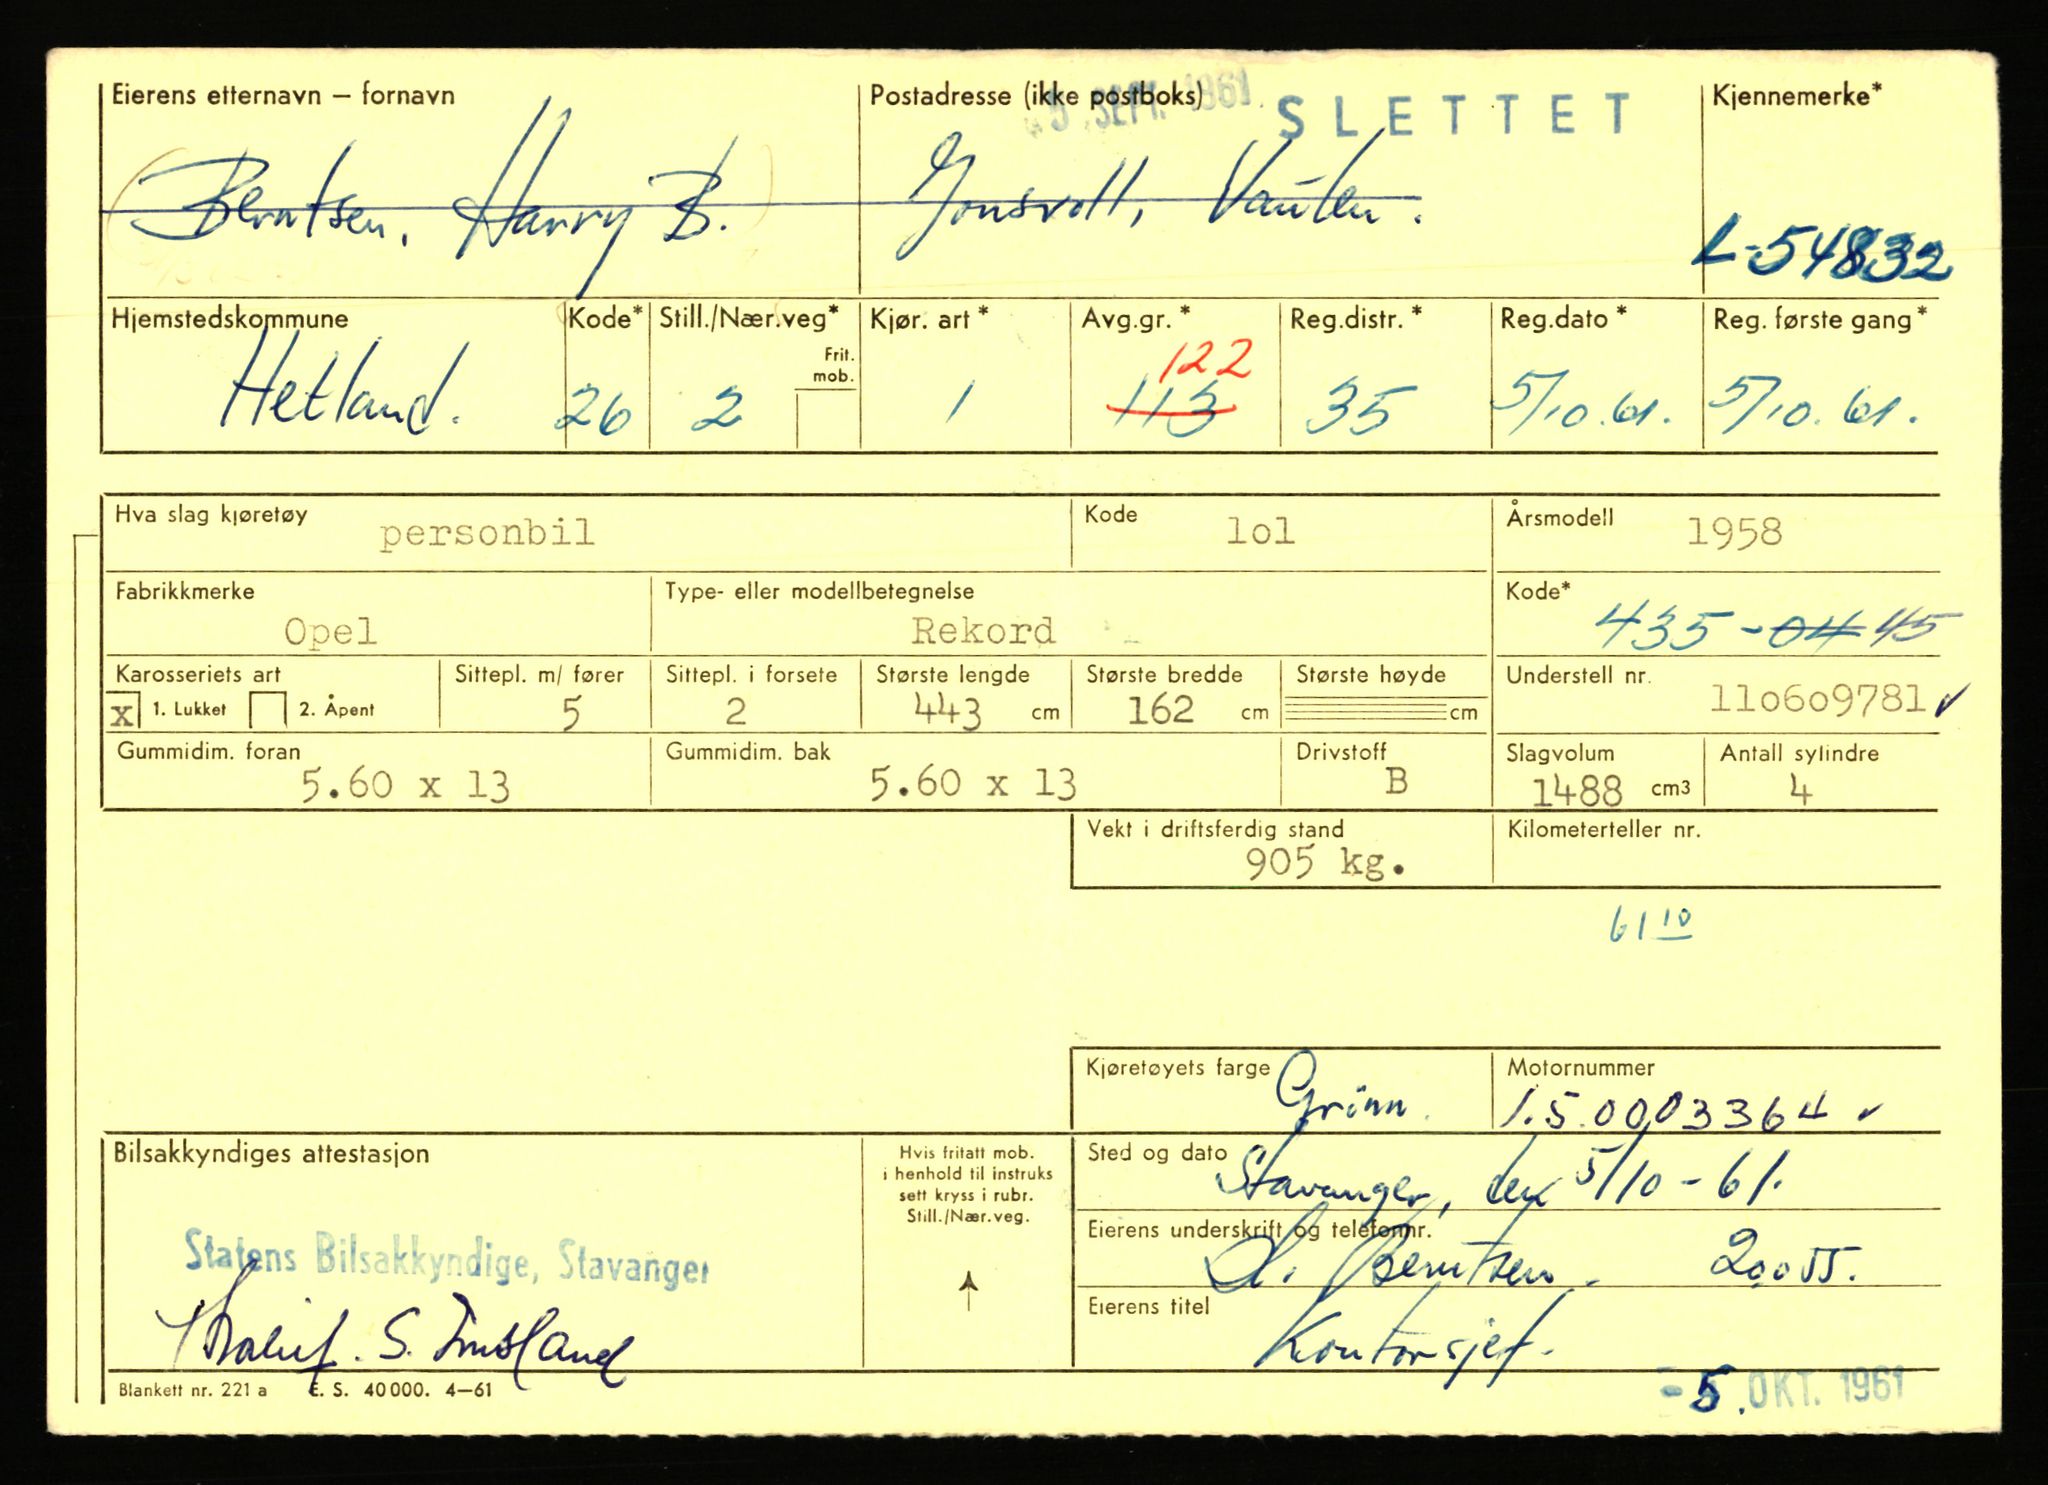 Eierens etternavn – fornavn Postadresse (ikke postboks) Kjennemerke*
SEPT. 1961 SLETTET
(Berntsen, Harry B.) Jonsvoll, Vaulen. L-54832
Hjemstedskommune Kode* Still./Nær.veg* Kjør. art* Avg.gr.* Reg.distr.* Reg.dato* Reg. første gang*
Frit. mob.
122
Hetland. 26 2 1 113 35 5/10.61. 5/10.61.
Hva slag kjøretøy personbil Kode lol Årsmodell 1958
Fabrikkmerke Type- eller modellbetegnelse Kode*
Opel Rekord 435-04 45
Karosseriets art Sittepl. m/ fører Sittepl. i forsete Største lengde Største bredde Største høyde Understell nr.
x 1. Lukket 2. Åpent 5 2 443 cm 162 cm cm 11o6o9781
Gummidim. foran Gummidim. bak Drivstoff Slagvolum Antall sylindre
5.60 x 13 5.60 x 13 B 1488 cm3 4
Vekt i driftsferdig stand Kilometerteller nr.
905 kg.
61 10
Kjøretøyets farge Motornummer
Grønn. 1.5.0003364
Bilsakkyndiges attestasjon
Hvis fritatt mob.
i henhold til instruks
sett kryss i rubr.
Still./Nær.veg.
Sted og dato
Stavanger, den 5/10-61.
Eierens underskrift og telefonnr.
Statens Bilsakkyndige, Stavanger
Berntsen. 20055.
Eierens titel
S. Imsland
Kontorsjef.
Blankett nr. 221 a E. S. 40 000. 4–61
-5. OKT. 1961